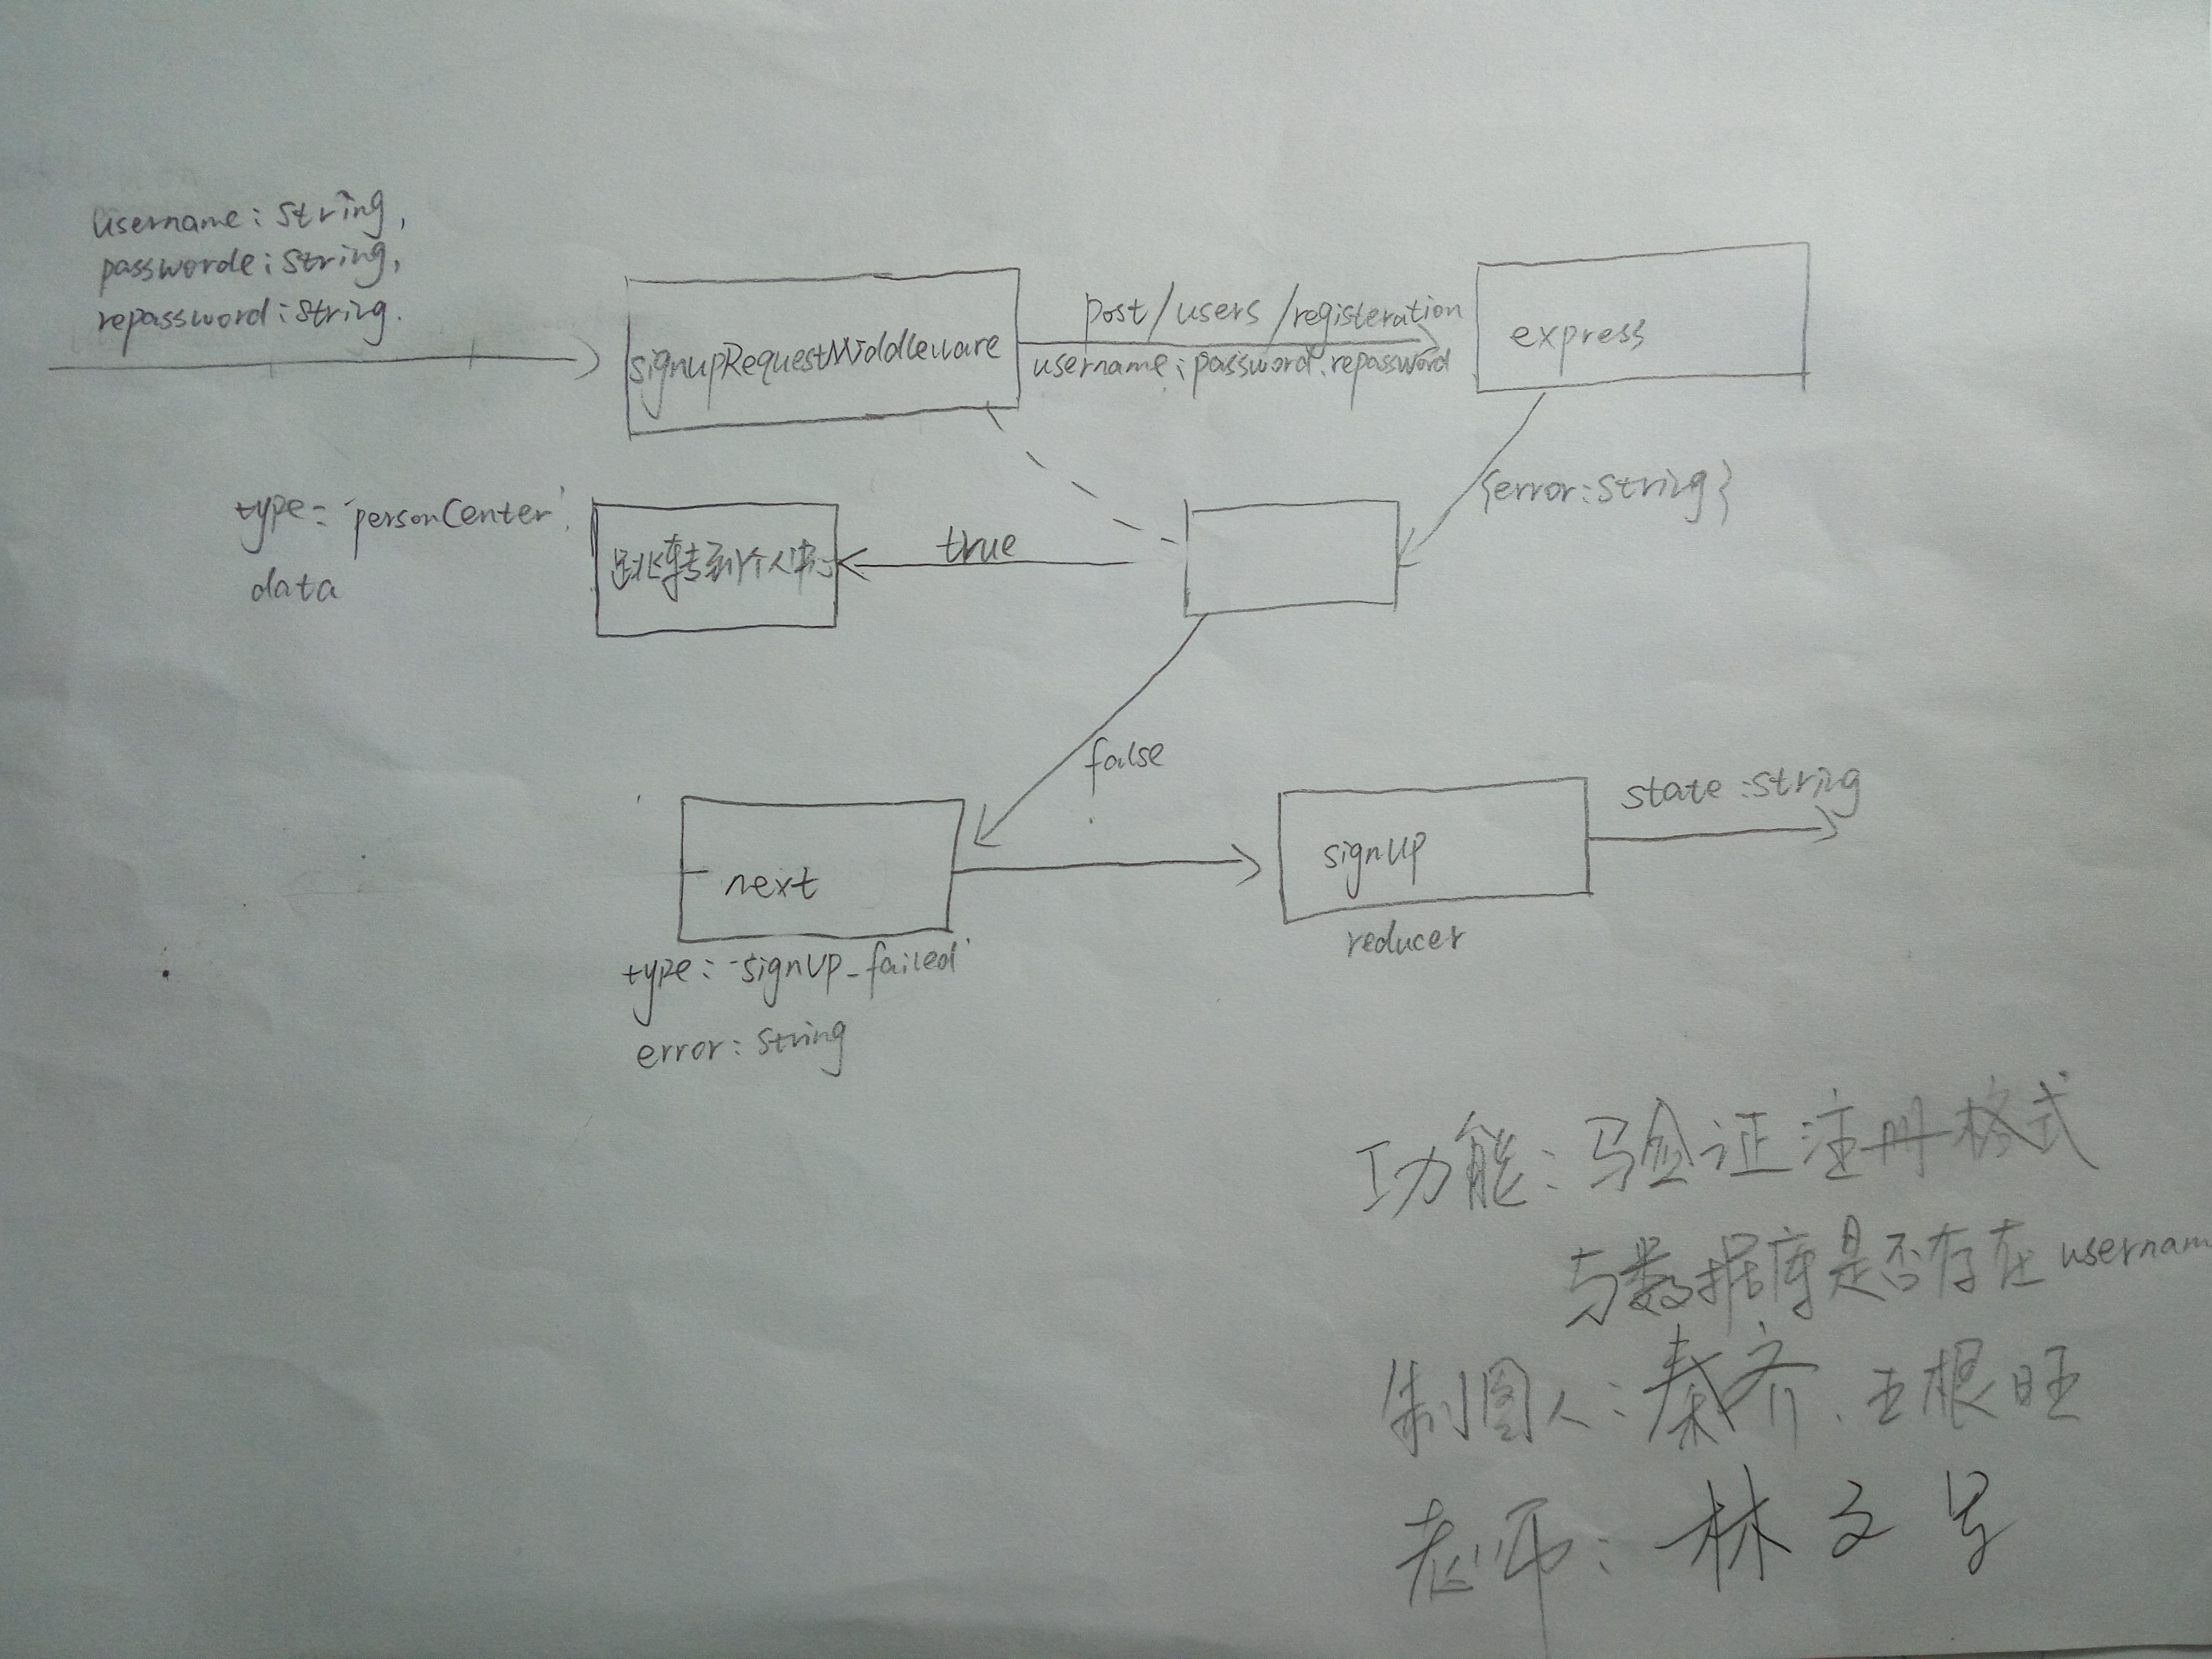 username: string,
passworde: string,
repassword: string.
signupRequestMiddleware
post/users/registeration
username; password. repassword
express
{error: string}
type= 'personCenter'.
data
跳转到个人中心
true
false
next
type: 'signUP_failed'
error: string
signUP
reducer
state: string
功能: 验证注册格式
与数据库是否存在 usernam
制图人: 秦齐. 王根旺
老师: 林文